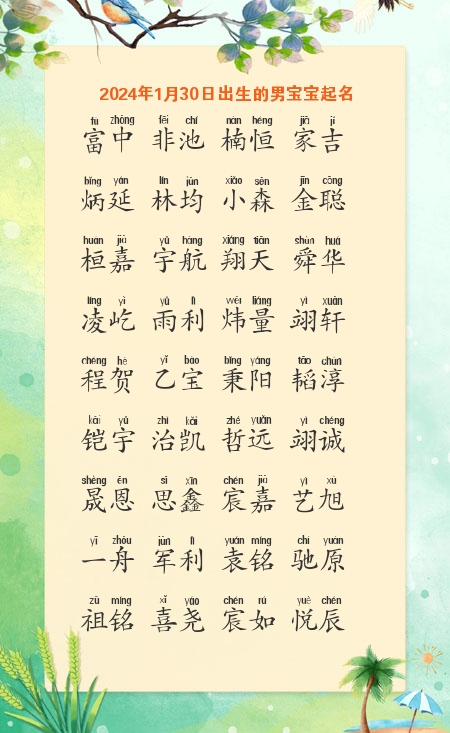 2024年1月30日出生的男宝宝起名
fù zhōng fēi chí nán héng jiā jí
富中 非池 楠恒 家吉
bǐng yán lín jūn xiǎo sēn jīn cōng
炳延 林均 小森 金聪
huán jiā yǔ háng xiáng tiān shùn huá
桓嘉 宇航 翔天 舜华
líng yì yǔ lì wěi liàng yì xuān
凌屹 雨利 炜量 翊轩
chéng hè yǐ bǎo bǐng yáng tāo chún
程贺 乙宝 秉阳 韬淳
kǎi yǔ zhì kǎi zhé yuǎn yì chéng
铠宇 治凯 哲远 翊诚
shèng ēn sī xīn chén jiā yì xù
晟恩 思鑫 宸嘉 艺旭
yī zhōu jūn lì yuán míng chí yuán
一舟 军利 袁铭 驰原
zǔ míng xǐ yáo chén rú yuè chén
祖铭 喜尧 宸如 悦辰